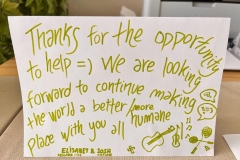 Thanks for the opportunity
to help =) We are looking
forward to continue making
the world a better/more
humane
place with you all
ELISABET & JOSIH